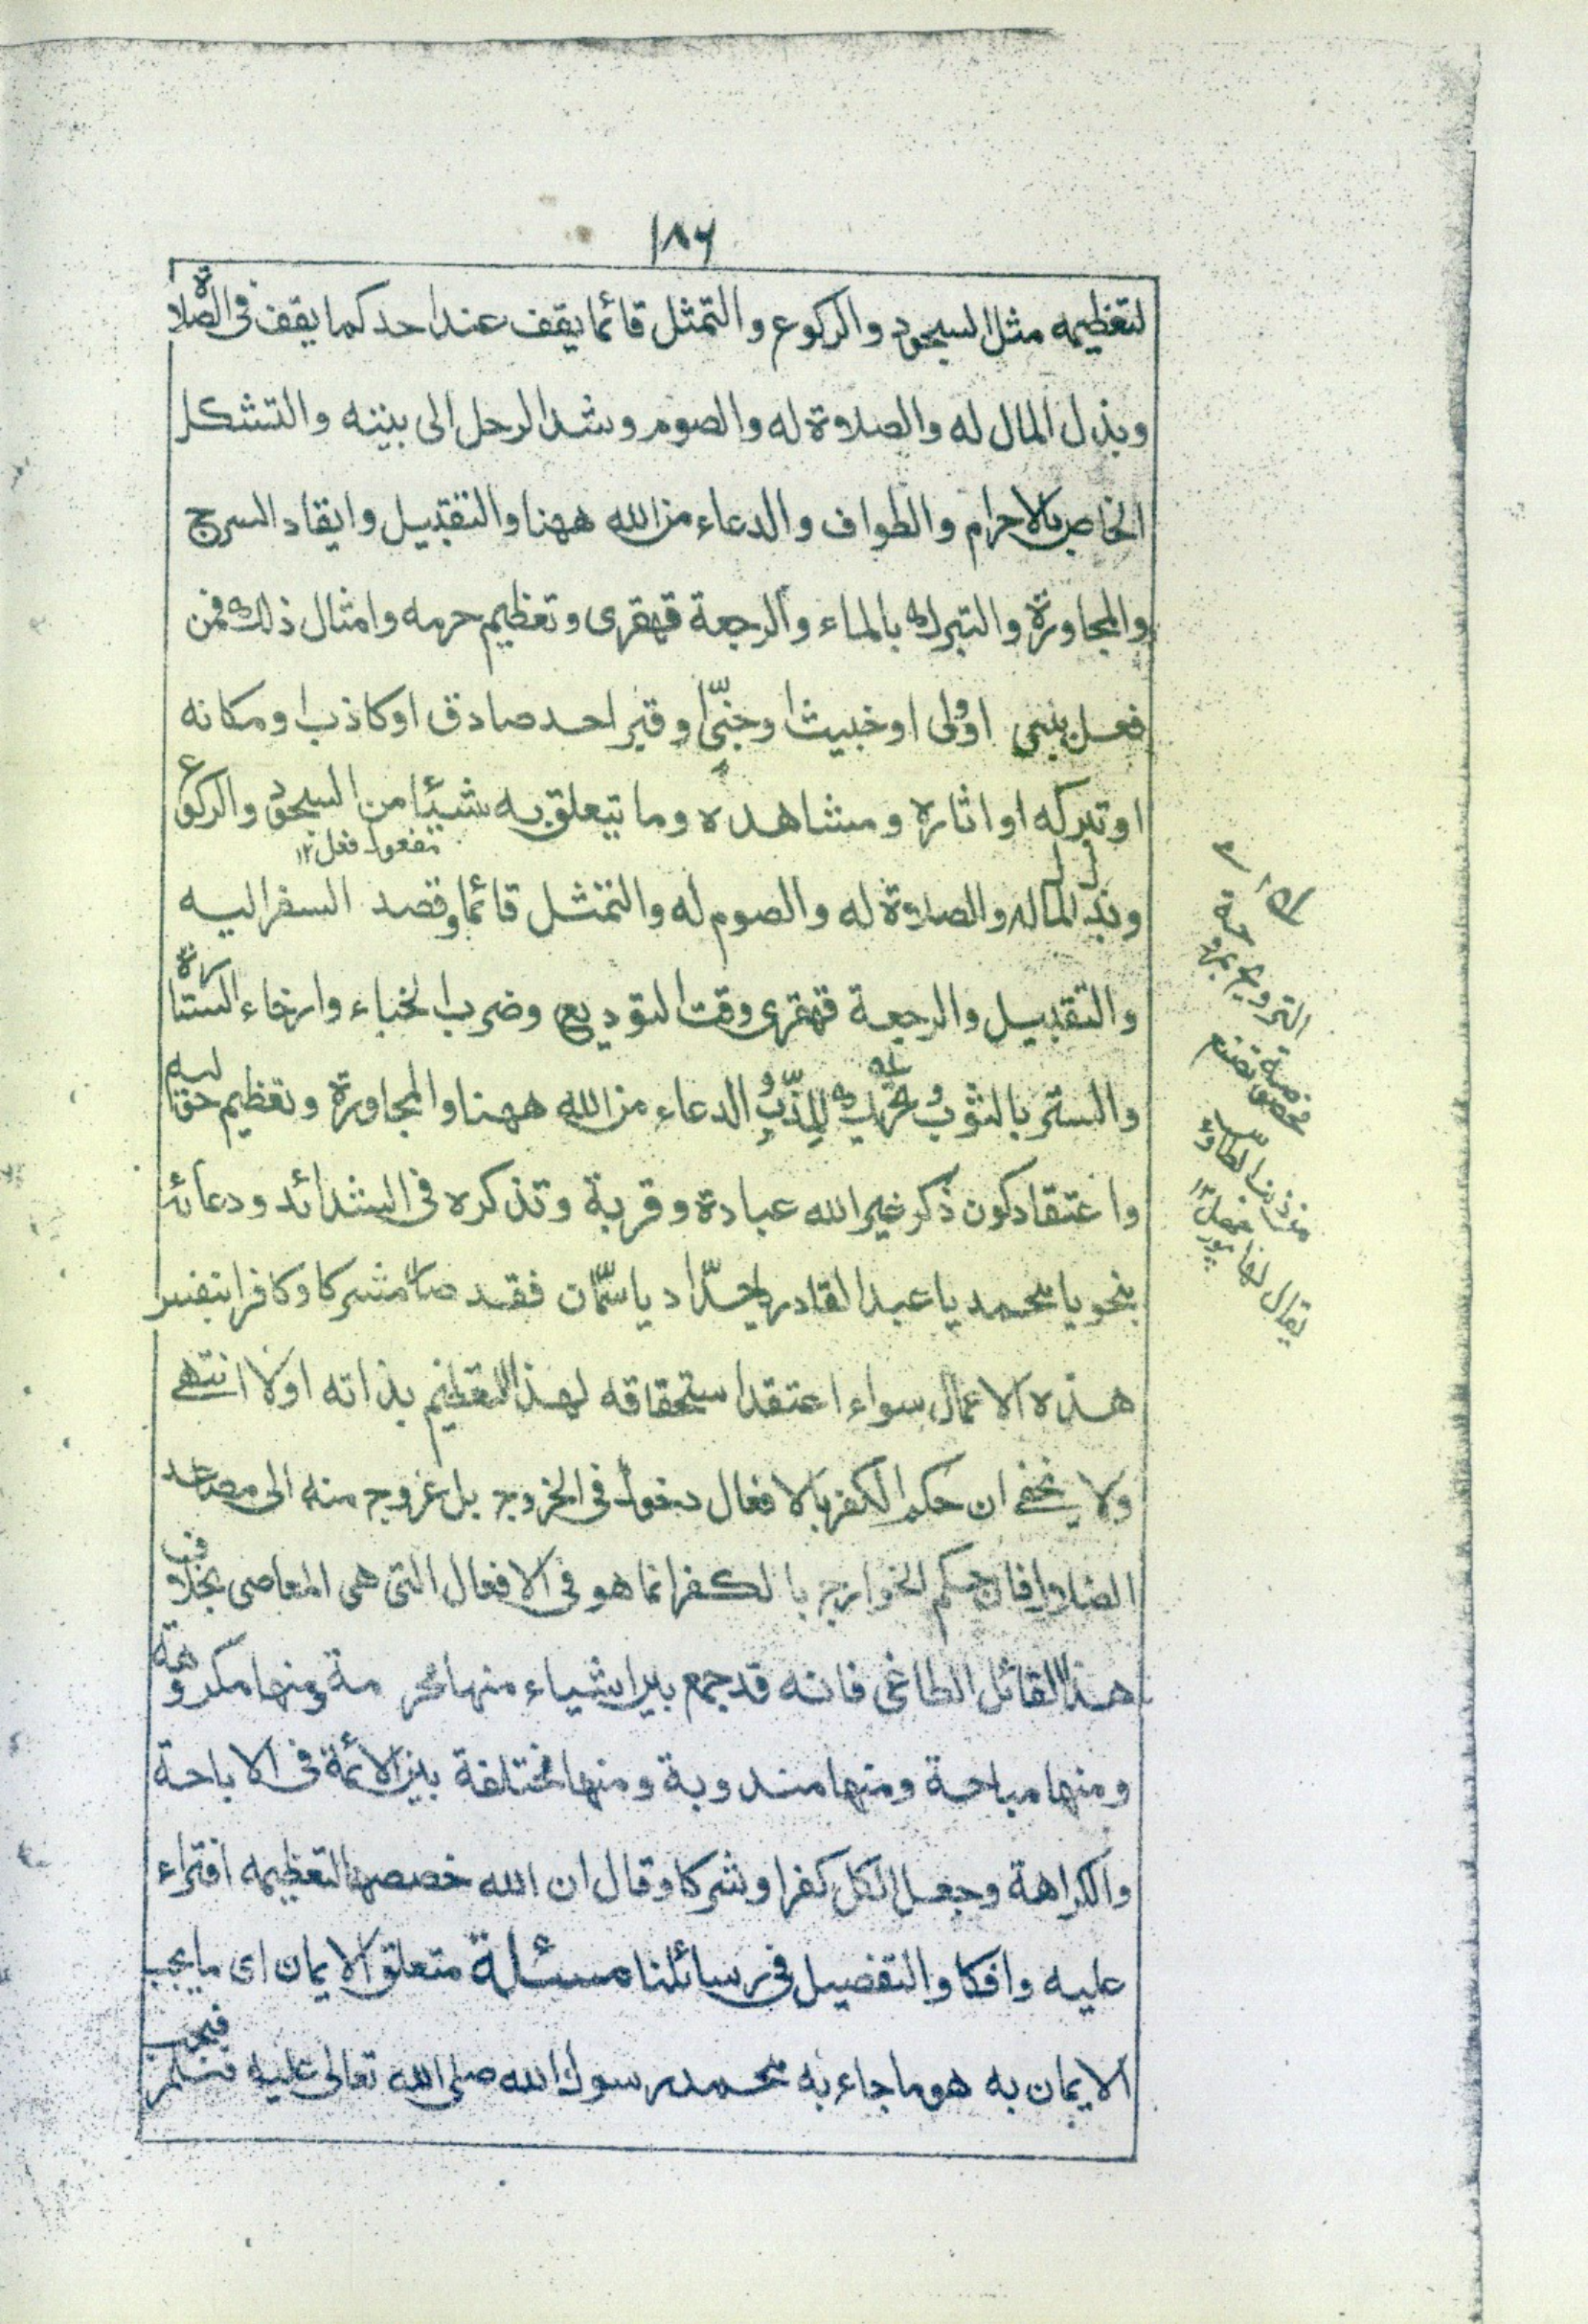 ١٨٦
لتعظيمه مثل السجود والركوع والتمثل قائما يقف عند احد كما يقف فى الصلاة
وبذل المال له والصلاة له والصوم وشد الرحل الى بيته والتشكل
الخاص بالاحرام والطواف والدعاء من الله ههنا والتقبيل وايقاد السرج
والمجاورة والتبرك بالماء والرجعة قهقرى وتعظيم حرمه وامثال ذلك فمن
فعل بنبى او ولى او خبيث او جنّىّ او قبر احد صادق او كاذب او مكانه
او تبركه او اثاره ومشاهده وما يتعلق به شيئا من السجود والركوع
مفعول فعل ١٢
وبذل المال له والصلاة له والصوم له والتمثل قائما وقصد السفر اليه
والتقبيل والرجعة قهقرى وقت التوديع وضرب الخباء وارخاء الستارة
والستر بالثوب الدعاء من الله ههنا والمجاورة وتعظيم حواليه
واعتقاد كون ذكر غير الله عبادة وقربة وتذكره فى الشدائد ودعائه
بنحو يا محمد يا عبد القادر يا حدّاد يا سمّان فقد صار مشركا وكافرا بنفس
هذه الاعمال سواء اعتقد استحقاقه لهذا التعظيم بذاته او لا انتهى
ولا يخفى ان حكم الكفر بالافعال دخول فى الخروج بل عروج منه الى مصاعد
الضلال فان حكم الخوارج بالكفر انما هو فى الافعال التى هى المعاصى بخلاف
هذا القائل الطاغى فانه قد جمع بين اشياء منها محرمة ومنها مكروهة
ومنها مباحة ومنها مندوبة ومنها مختلفة بين الائمة فى الاباحة
والكراهة وجعل الكل كفرا وشركا وقال ان الله خصصها لتعظيمه افتراء
عليه وافكا والتفصيل فى رسائلنا مسئلة متعلق الايمان اى ما يجب
الايمان به هو ما جاء به محمد رسول الله صلى الله تعالى عليه وسلم فيجب